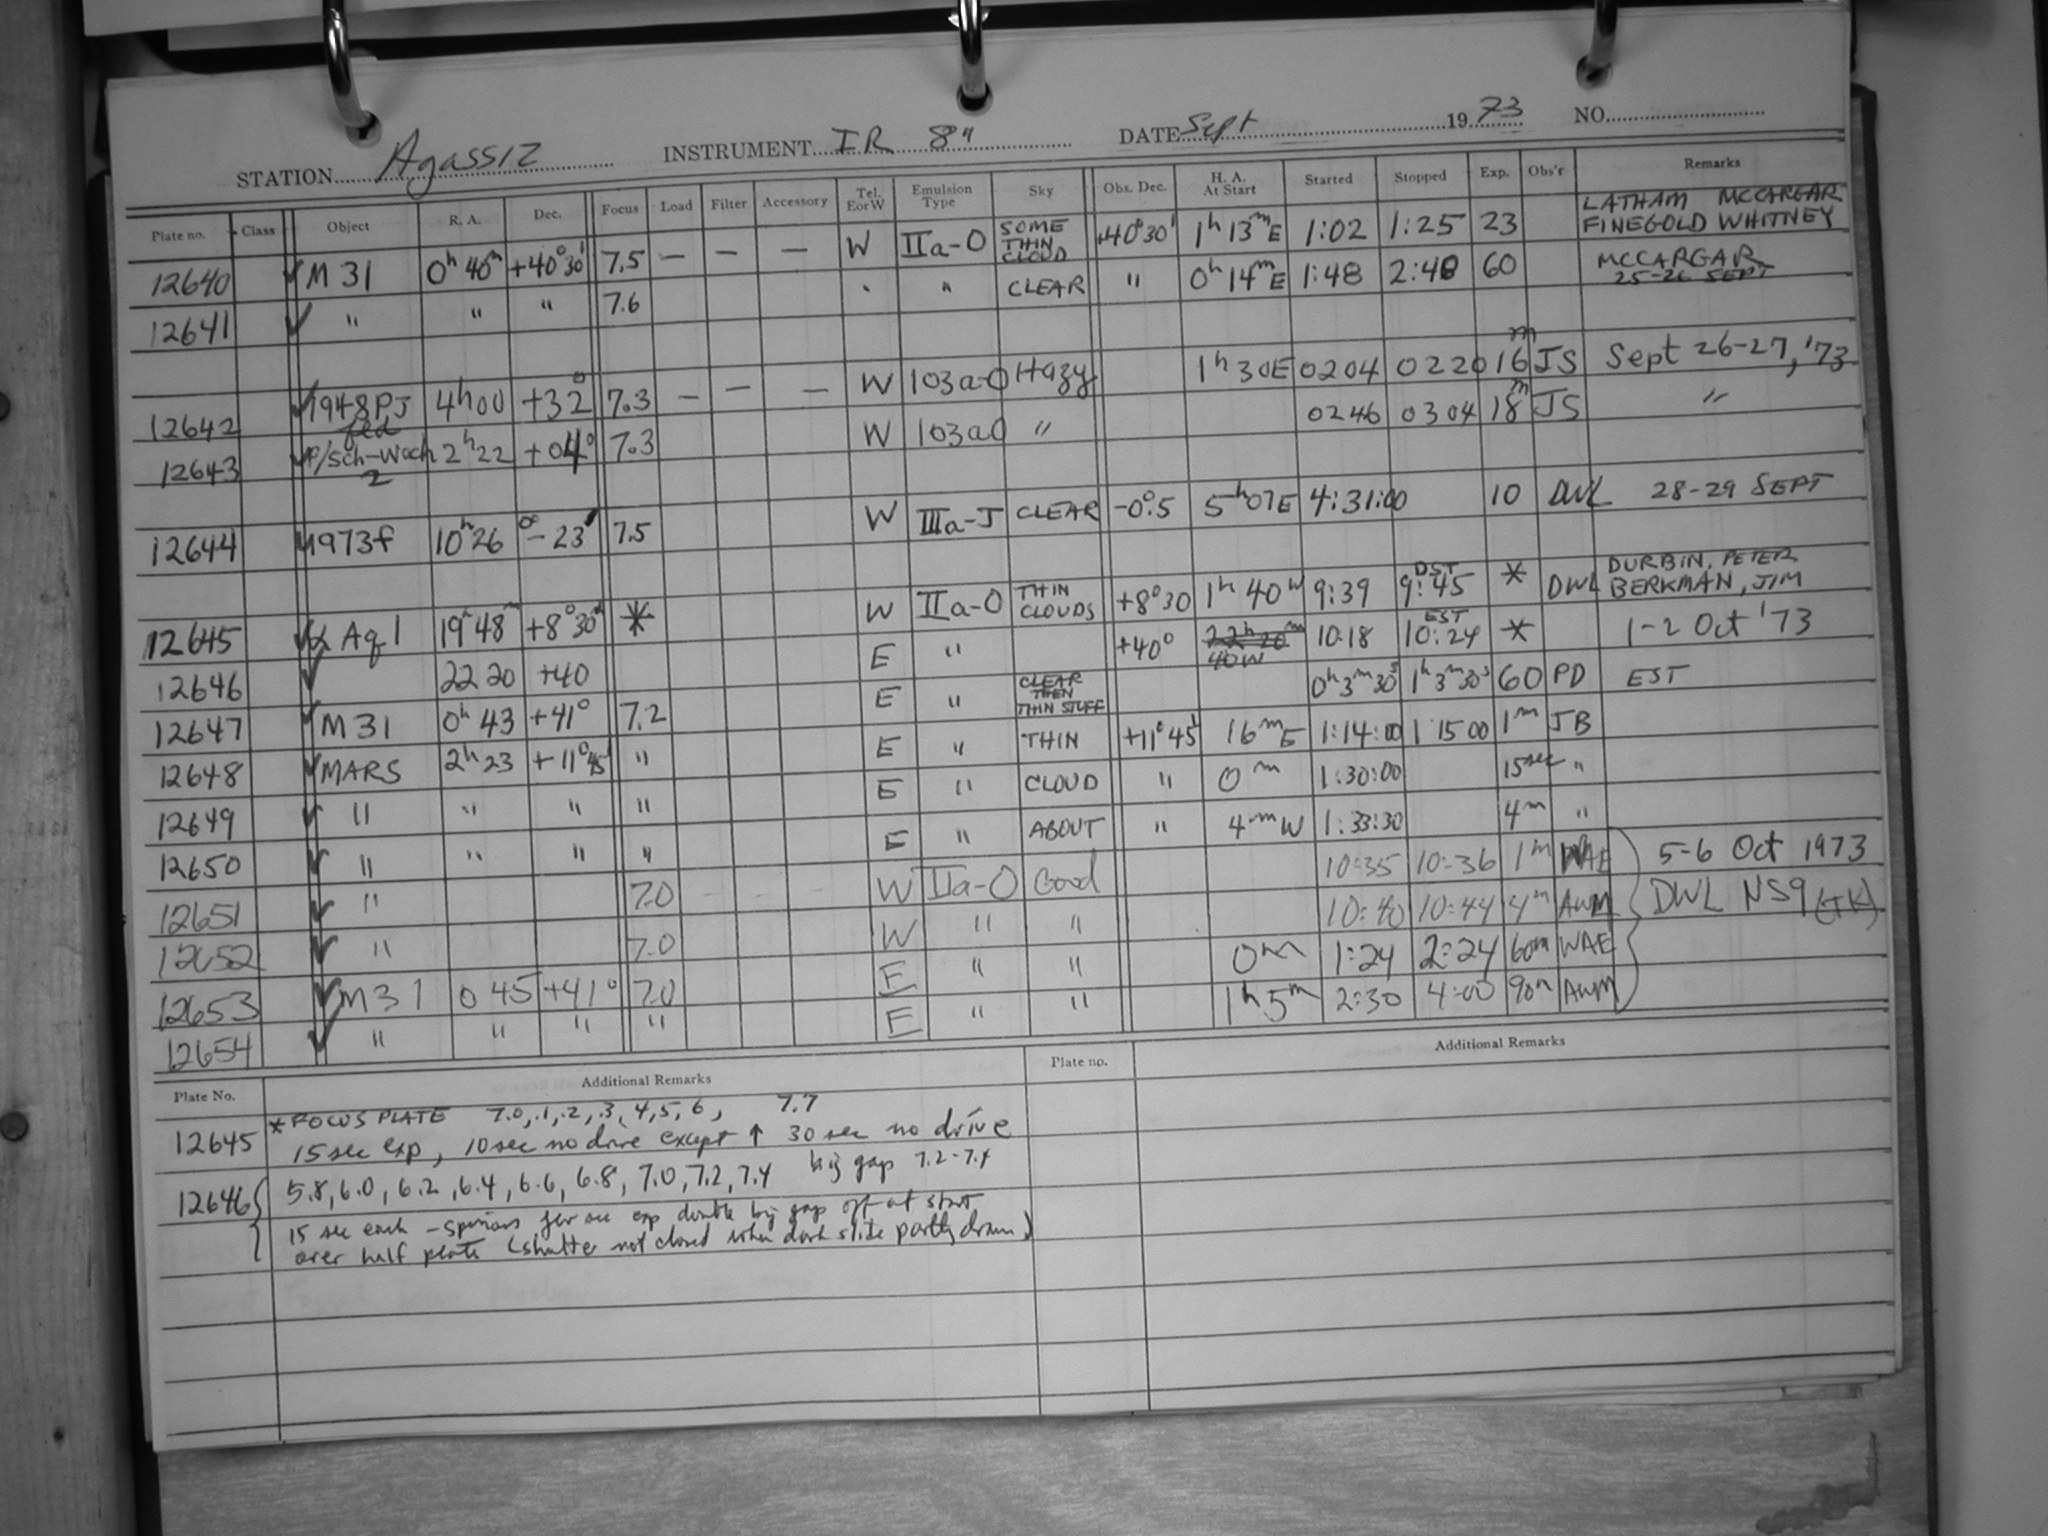 STATION Agassiz INSTRUMENT IR 8" DATE Sept 1973 NO.
Plate no. Class Object R. A. Dec. Focus Load Filter Accessory Tel. E or W Emulsion Type Sky Obs. Dec. H. A. At Start Started Stopped Exp. Obs'r Remarks
12640 ✓ M 31 0h 40m +40°30' 7.5 — — — W IIa-O SOME THIN CLOUD +40°30' 1h 13m E 1:02 1:25 23 LATHAM MCCARGAR FINEGOLD WHITNEY
12641 ✓ " " " 7.6 " CLEAR " 0h 14m E 1:48 2:48 60 MCCARGAR 25-26 SEPT
12642 ✓ 1948PJ fld 4h00 +32° 7.3 — — — W 103a-O Hazy 1h 30E 0204 0220 16m JS Sept 26-27, '73
12643 ✓ P/Sch-Wach 2 2h 22 +04° 7.3 W 103aO " 0246 0304 18m JS "
12644 ✓ 1973f 10h26 -23' 7.5 W IIIa-J CLEAR -0°.5 5h07E 4:31:00 10 DWL 28-29 SEPT
12645 ✓ α Aql 19h48m +8°30' * W IIa-O THIN CLOUDS +8°30 1h 40W 9:39 9:45 DST * DWL DURBIN, PETER BERKMAN, JIM
12646 ✓ 22 20 +40 E " +40° 22h 20m 40W 10:18 10:24 EST * 1-2 Oct '73
12647 ✓ M 31 0h 43 +41° 7.2 E " CLEAR THEN THIN STUFF 0h 3m 30s 1h 3m 30s 60 PD EST
12648 ✓ MARS 2h 23 +11°45' " E " THIN +11°45' 16mE 1:14:00 1 15 00 1m JB
12649 ✓ " " " " E " CLOUD " 0m 1:30:00 15sec "
12650 ✓ " " " " E " ABOUT " 4m W 1:33:30 4m "
12651 ✓ " 7.0 W IIa-O Good 10:35 10:36 1m WAE 5-6 Oct 1973
12652 ✓ " 7.0 W " " 10:40 10:44 4m AWM DWL NS9 (TK)
12653 ✓ M 31 0 45 +41° 7.0 E " " 0m 1:24 2:24 60m WAE
12654 ✓ " " " " E " " 1h 5m 2:30 4:00 90m AWM
Plate No. Additional Remarks Plate no. Additional Remarks
12645 * FOCUS PLATE 7.0, .1, .2, .3, 4, 5, 6, 7.7
15 sec exp, 10 sec no drive except ↑ 30 sec no drive
12646 5.8, 6.0, 6.2, 6.4, 6.6, 6.8, 7.0, 7.2, 7.4 big gap 7.2-7.4
15 sec each - spurious exp double big gap off at start
over half plate (shutter not closed when dark slide partly drawn)